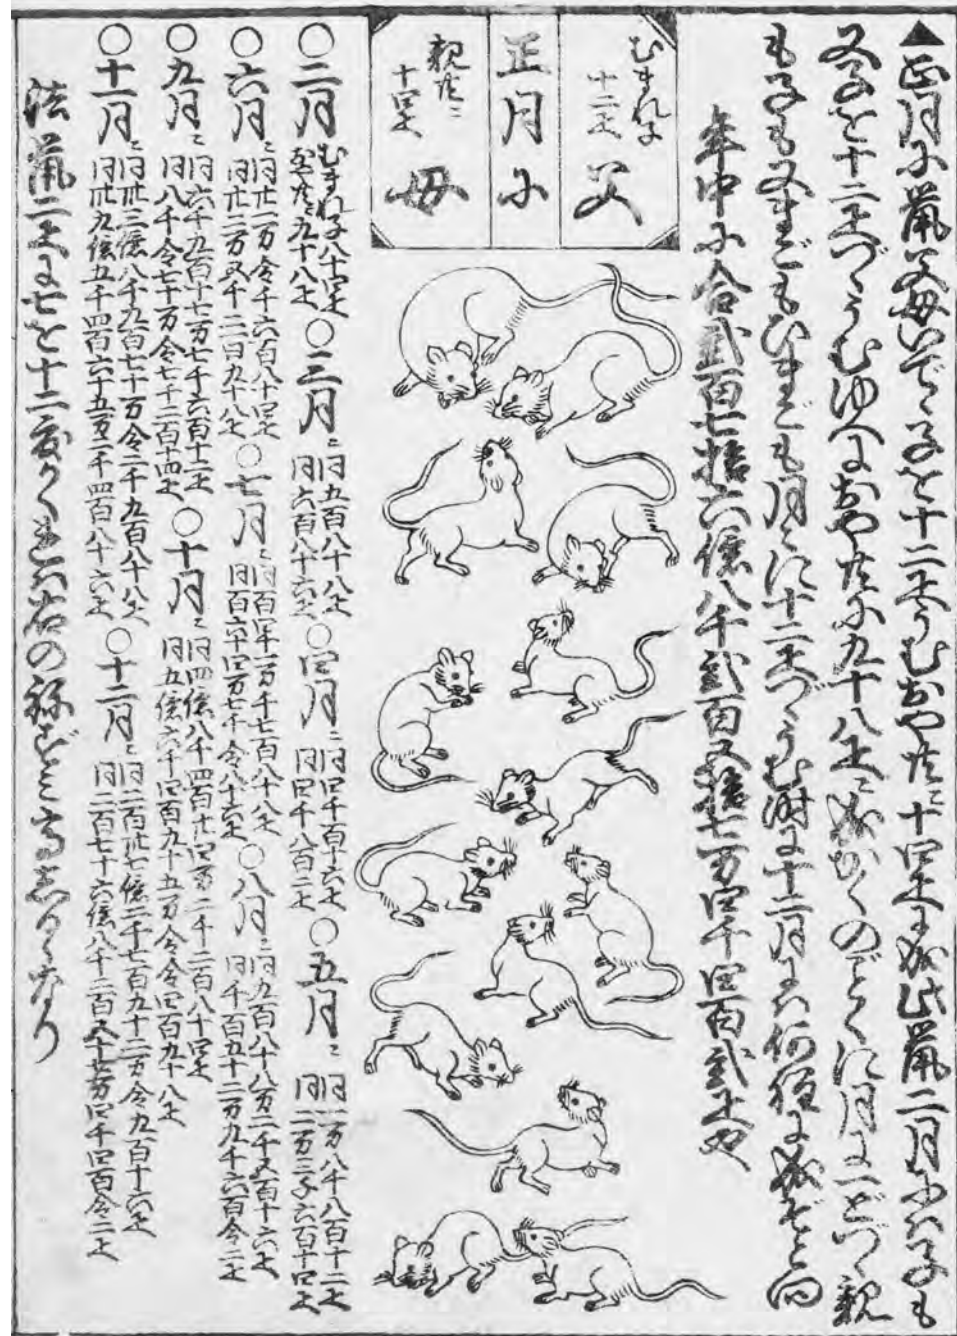 ▲正月に鼠父母いでゝ子を十二疋うむおや共ニ十四疋に成此鼠二月にハ子も
又子を十二疋づゝうむゆへにおや共に九十八疋ニ成かくのごとくに月に一どづゝ親
も子も又まごもひまごも月〻に十二疋づゝうむ時に十二月にハ何程に成ぞと問
年中に合弐百七拾六億八千弐百五拾七万四千四百弐疋也
むまれ子
十二疋
父
正月に
親共ニ
十四疋
母
〇二月ニ
むまれ子八十四疋
親共ニ九十八疋
〇三月ニ
同五百八十八疋
同六百八十六疋
〇四月ニ
同四千百十六疋
同四千八百二疋
〇五月ニ
同二万八千八百十二疋
同三万三千六百十四疋
〇六月ニ
同廿万令千六百八十四疋
同廿三万五千二百九十八疋
〇七月ニ
同百四十一万千七百八十八疋
同百六十四万七千令八十六疋
〇八月ニ
同九百八十八万二千五百十六疋
同千百五十二万九千六百令二疋
〇九月ニ
同六千九百十七万七千六百十二疋
同八千令七十万令七千二百十四疋
〇十月ニ
同四億八千四百廿四万三千二百八十四疋
同五億六千四百九十五万令令四百九十八疋
〇十一月ニ
同卅三億八千九百七十万令二千九百八十八疋
同卅九億五千四百六十五万三千四百八十六疋
〇十二月ニ
同二百卅七億二千七百九十二万令九百十六疋
同二百七十六億八千二百五十七万四千四百令二疋
法鼠二疋に七を十二度かくれハ右のねずミ高志るゝなり